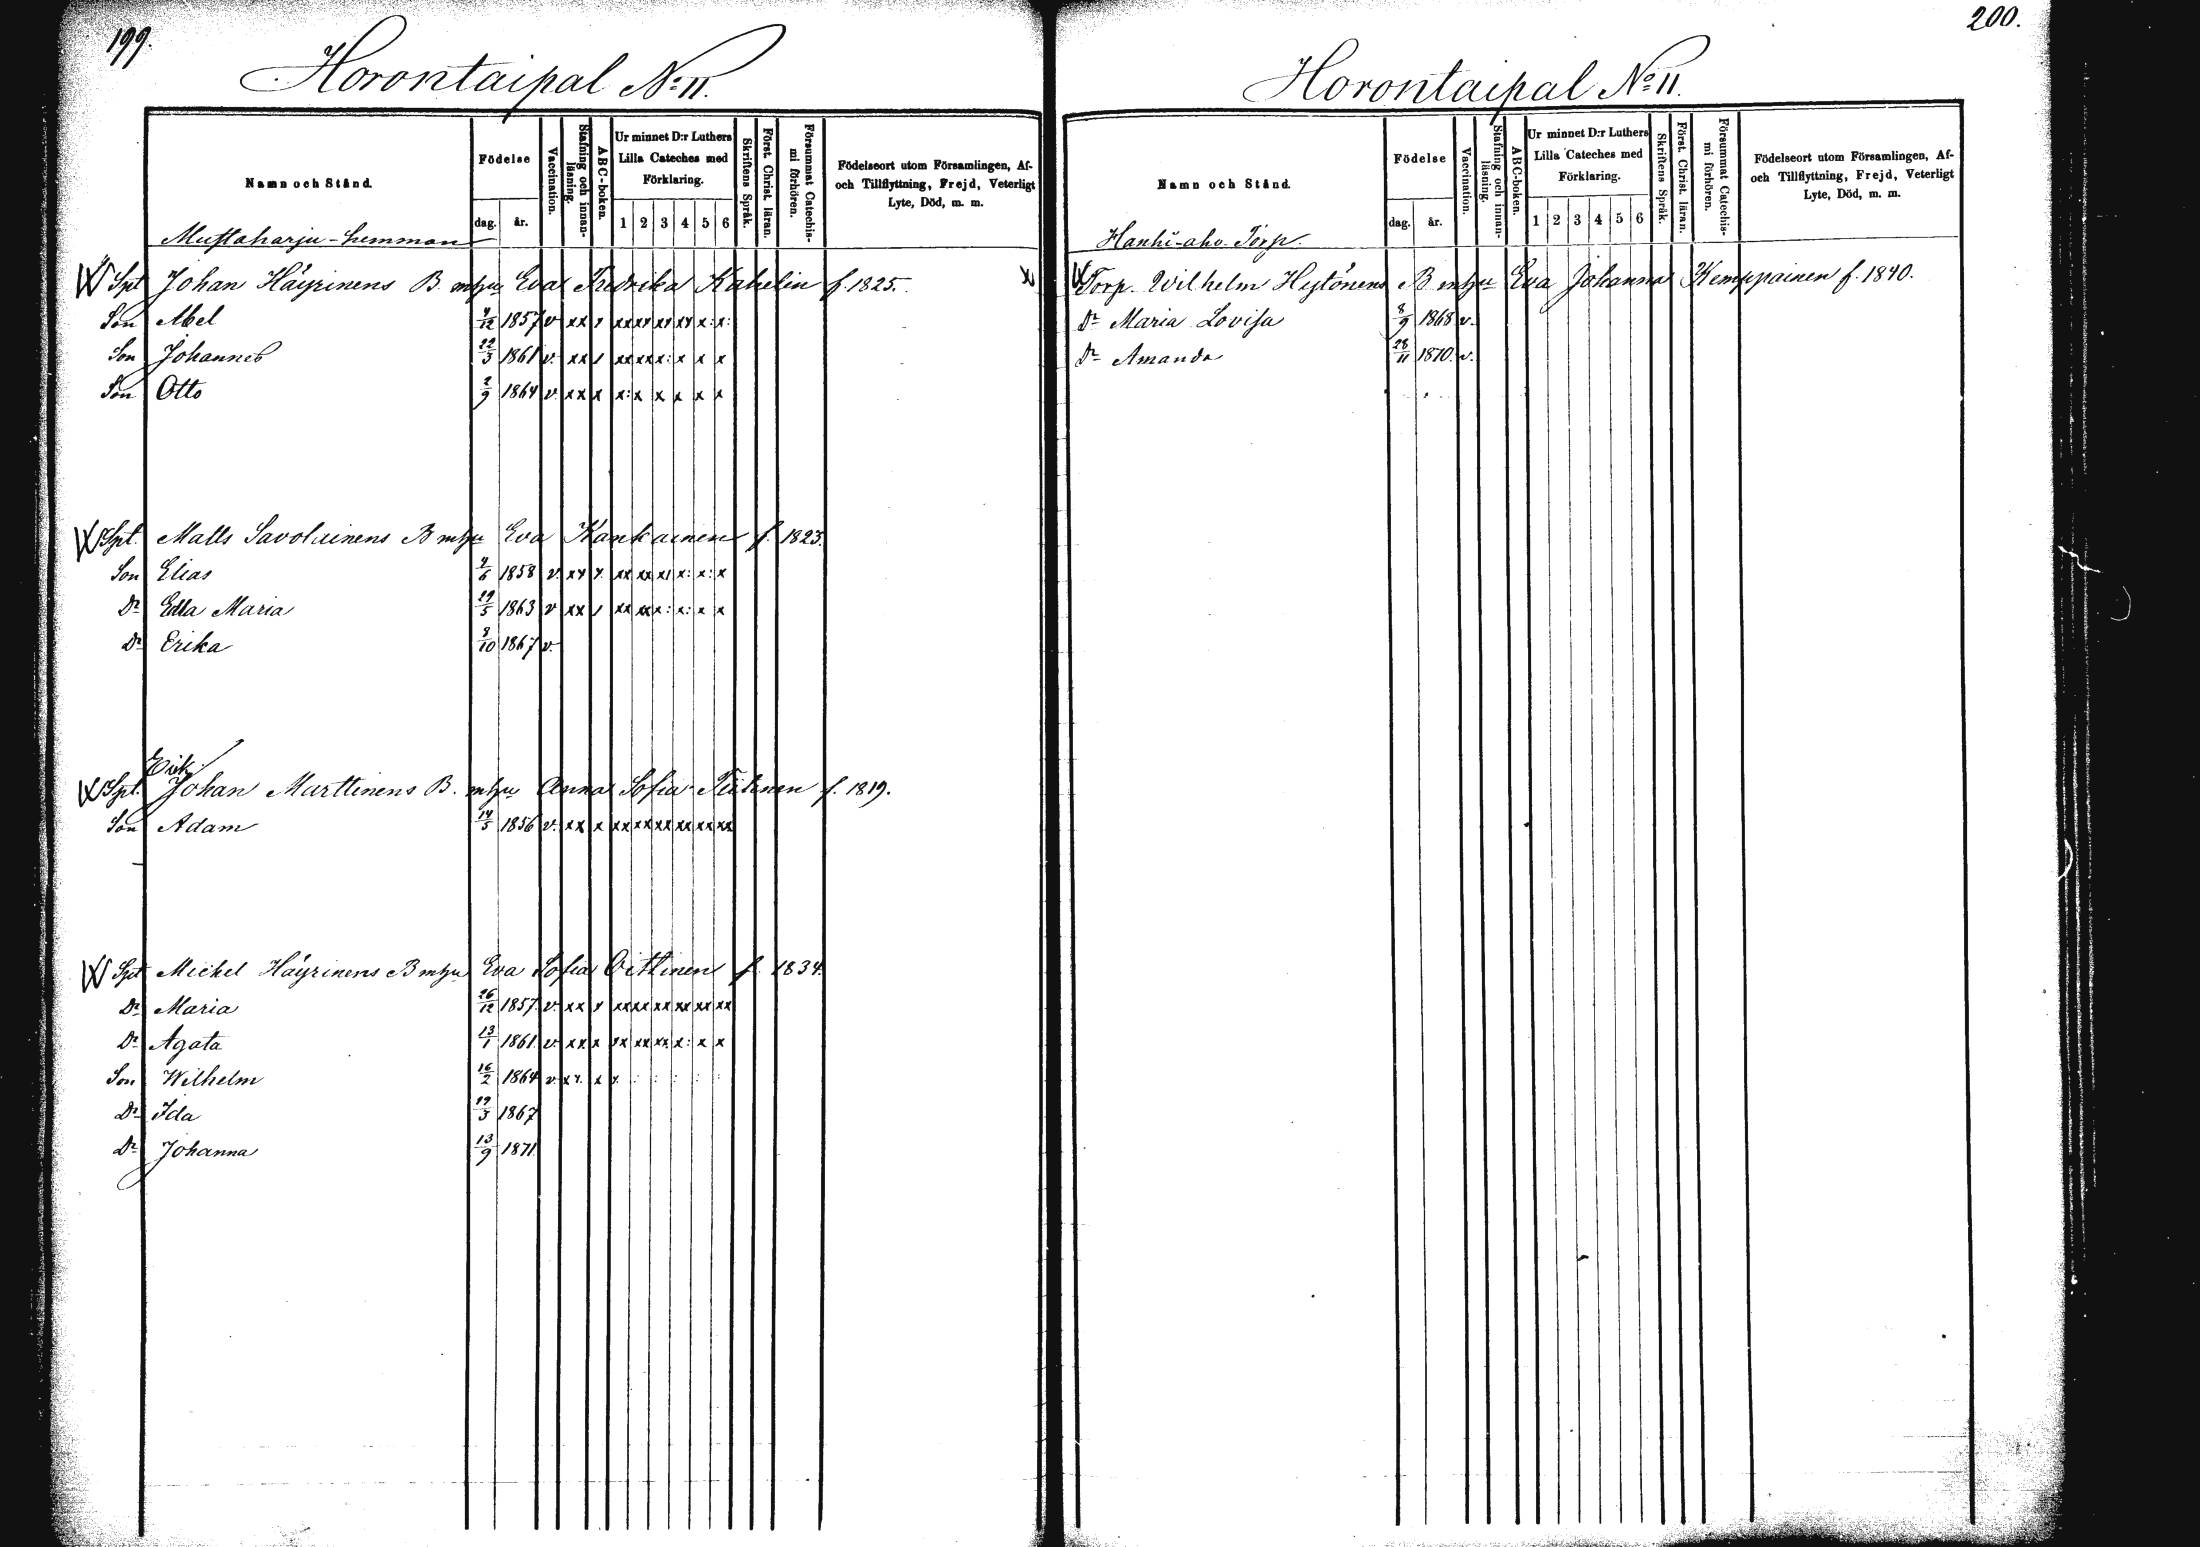 199.
Horontaipal No 11.
Namn och Stånd.
Födelse
dag.
år.
Vaccination.
Stafning och innan-
läsning.
ABC-boken.
Ur minnet D:r Luthers
Lilla Cateches med
Förklaring.
1 2 3 4 5 6
Skriftens Språk.
Först. Christ. läran.
Försummat Catechis-
mi förhören.
Födelseort utom Församlingen, Af-
och Tillflyttning, Frejd, Veterligt
Lyte, Död, m. m.
Mustaharju-hemman
Spt Johan Häyrinens B. mhu Eva Fredrika Kahelin f. 1825.
Son Abel 4/12 1857 v xx x xx xx xx xx x: x:
Son Johannes 22/3 1861 v. xx x xx xx x: x x x
Son Otto 2/9 1864 v. xx x x: x x x x x
Spt. Matts Savolainens B mhu Eva Kankainen f. 1823.
Son Elias 1858 v. xx x xx xx xx x: x: x
Dr Edla Maria 29/5 1863 v xx x xx xx x: x: x x
Dr Erika 8/10 1867 v.
Erik
Spt. Johan Marttinens B. mhu Anna Sofia f. 1819.
Son Adam 14/5 1856 v. xx x xx xx xx xx xx xx
Spt Michel Häyrinens B mhu Eva Sofia Oittinen f. 1834.
Dr Maria 26/12 1857. v. xx x xx xx xx xx xx xx
Dr Agata 13/1 1861. v. xx x xx xx xx x: x x
Son Wilhelm 16/2 1864 v xx. x x. : : : : :
Dr Ida 1867
Dr Johanna 13/9 1871
200.
Horontaipal No 11.
Namn och Stånd.
Födelse
dag.
år.
Vaccination.
Stafning och innan-
läsning.
ABC-boken.
Ur minnet D:r Luthers
Lilla Cateches med
Förklaring.
1 2 3 4 5 6
Skriftens Språk.
Först. Christ. läran.
Försummat Catechis-
mi förhören.
Födelseort utom Församlingen, Af-
och Tillflyttning, Frejd, Veterligt
Lyte, Död, m. m.
Hanhi-aho Torp.
Torp. Wilhelm Hytönens B mhu Eva Johanna Kemppainen f. 1840.
Dr Maria Lovisa 8/9 1868 v.
Dr Amanda 28/11 1870. v.